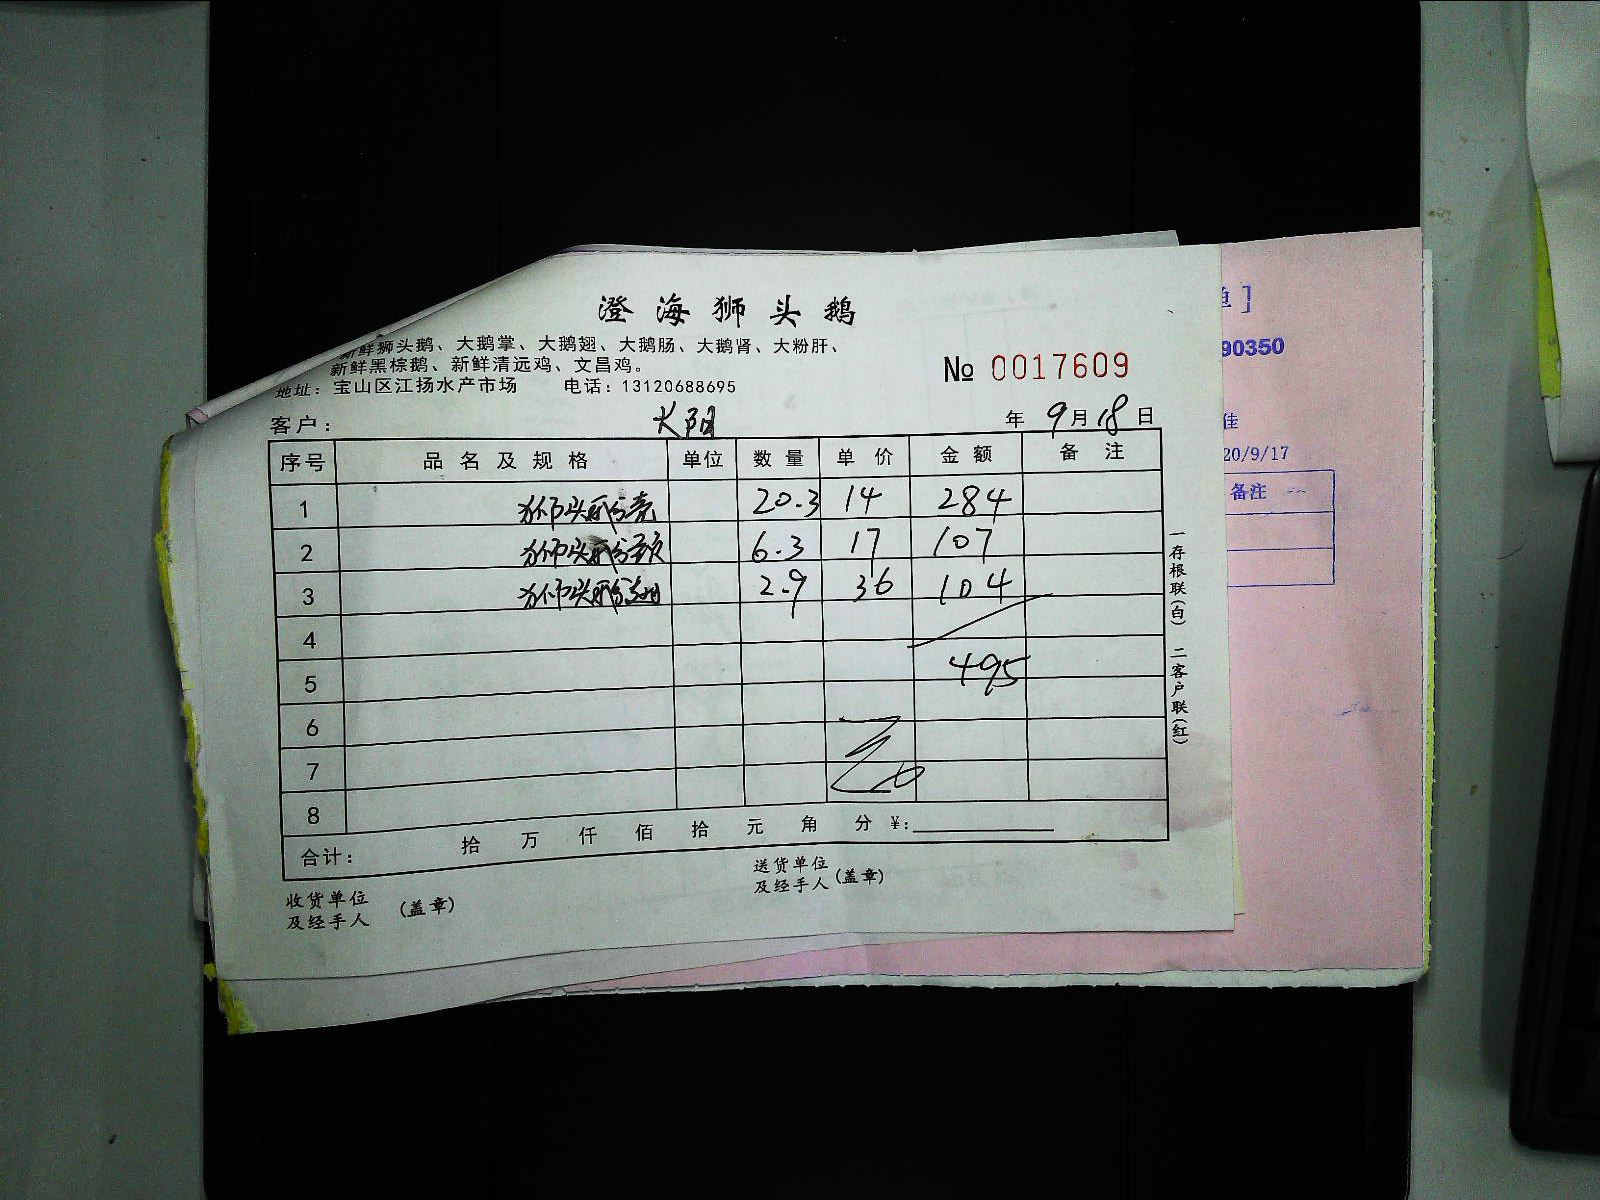 澄海狮头鹅
新鲜狮头鹅、大鹅掌、大鹅翅、大鹅肠、大鹅肾、大粉肝、
新鲜黑棕鹅、新鲜清远鸡、文昌鸡。
地址：宝山区江扬水产市场 电话：13120688695
№ 0017609
客户： 大阳 年 9月18日
序号 品名及规格 单位 数量 单价 金额 备注
1 狮头鹅 20.3 14 284
2 狮头鹅 6.3 17 107
3 狮头鹅 2.9 36 104
4
5 495
6
7
8
合计： 拾 万 仟 佰 拾 元 角 分 ¥:
收货单位
及经手人 (盖章)
送货单位
及经手人 (盖章)
一存根联(白) 二客户联(红)
单]
90350
佳
20/9/17
备注